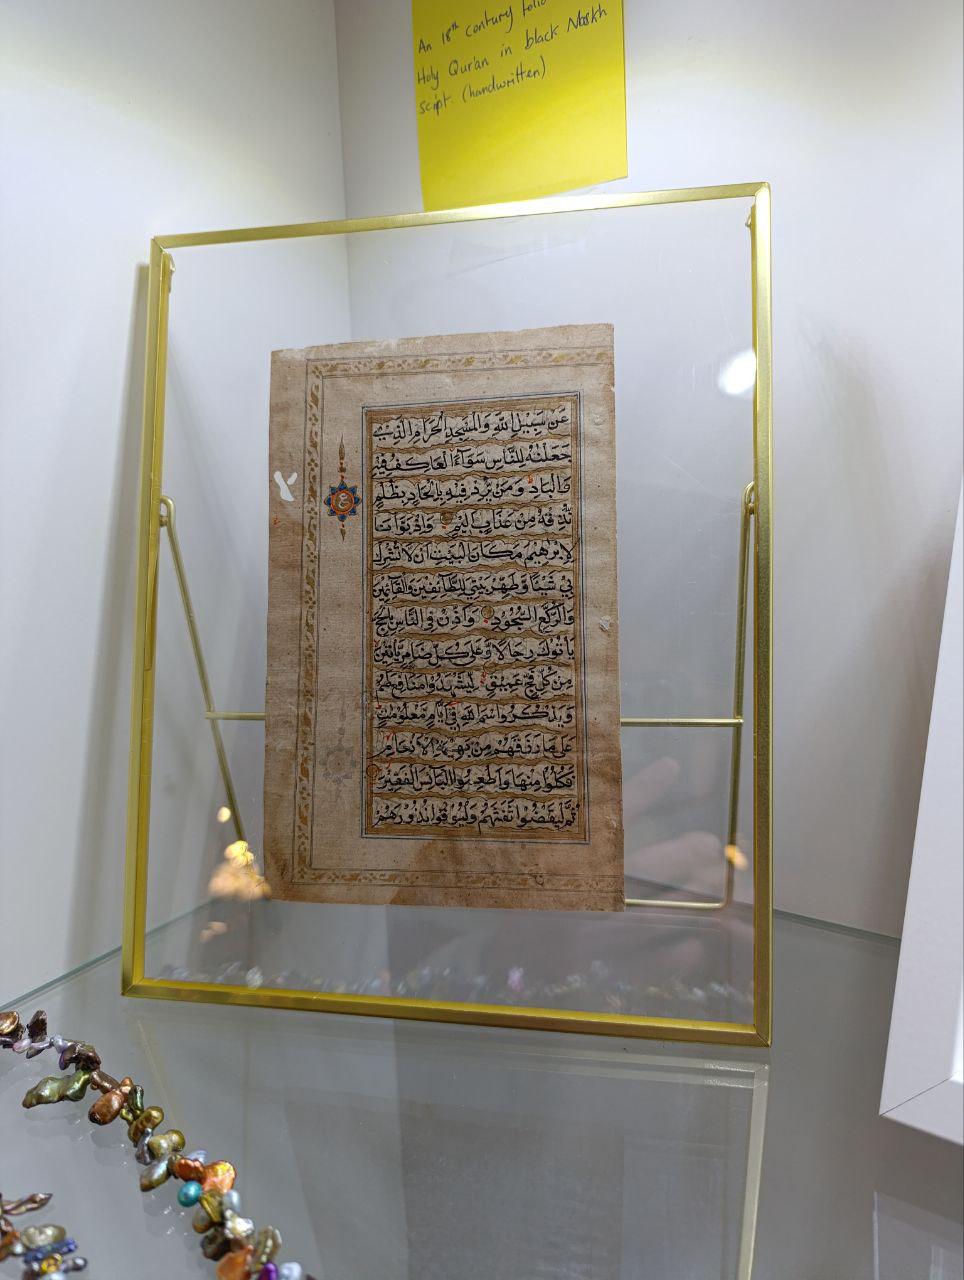 An 18th century folio
Holy Qur'an in black Naskh
script. (handwritten)
عَن سَبِيلِ اللّٰهِ وَالْمَسْجِدِ الْحَرَامِ الَّذِي
جَعَلْنٰهُ لِلنَّاسِ سَوَآءَ الْعَاكِفُ فِيْهِ
وَالْبَادِ وَمَنْ يُّرِدْ فِيْهِ بِاِلْحَادٍ بِظُلْمٍ
نُّذِقْهُ مِنْ عَذَابٍ اَلِيْمٍ وَاِذْ بَوَّاْنَا
لِاِبْرٰهِيْمَ مَكَانَ الْبَيْتِ اَنْ لَا تُشْرِكْ
بِيْ شَيْئًا وَّطَهِّرْ بَيْتِيَ لِلطَّآئِفِيْنَ وَالْقَآئِمِيْنَ
وَالرُّكَّعِ السُّجُوْدِ وَاَذِّنْ فِي النَّاسِ بِالْحَجِّ
يَاْتُوْكَ رِجَالًا وَّعَلٰى كُلِّ ضَامِرٍ يَّاْتِيْنَ
مِنْ كُلِّ فَجٍّ عَمِيْقٍ لِّيَشْهَدُوْا مَنَافِعَ لَهُمْ
وَيَذْكُرُوا اسْمَ اللّٰهِ فِيْ اَيَّامٍ مَّعْلُوْمٰتٍ
عَلٰى مَا رَزَقَهُمْ مِّنْ بَهِيْمَةِ الْاَنْعَامِ
فَكُلُوْا مِنْهَا وَاَطْعِمُوا الْبَآئِسَ الْفَقِيْرَ
ثُمَّ لْيَقْضُوْا تَفَثَهُمْ وَلْيُوْفُوْا نُذُوْرَهُمْ
ع